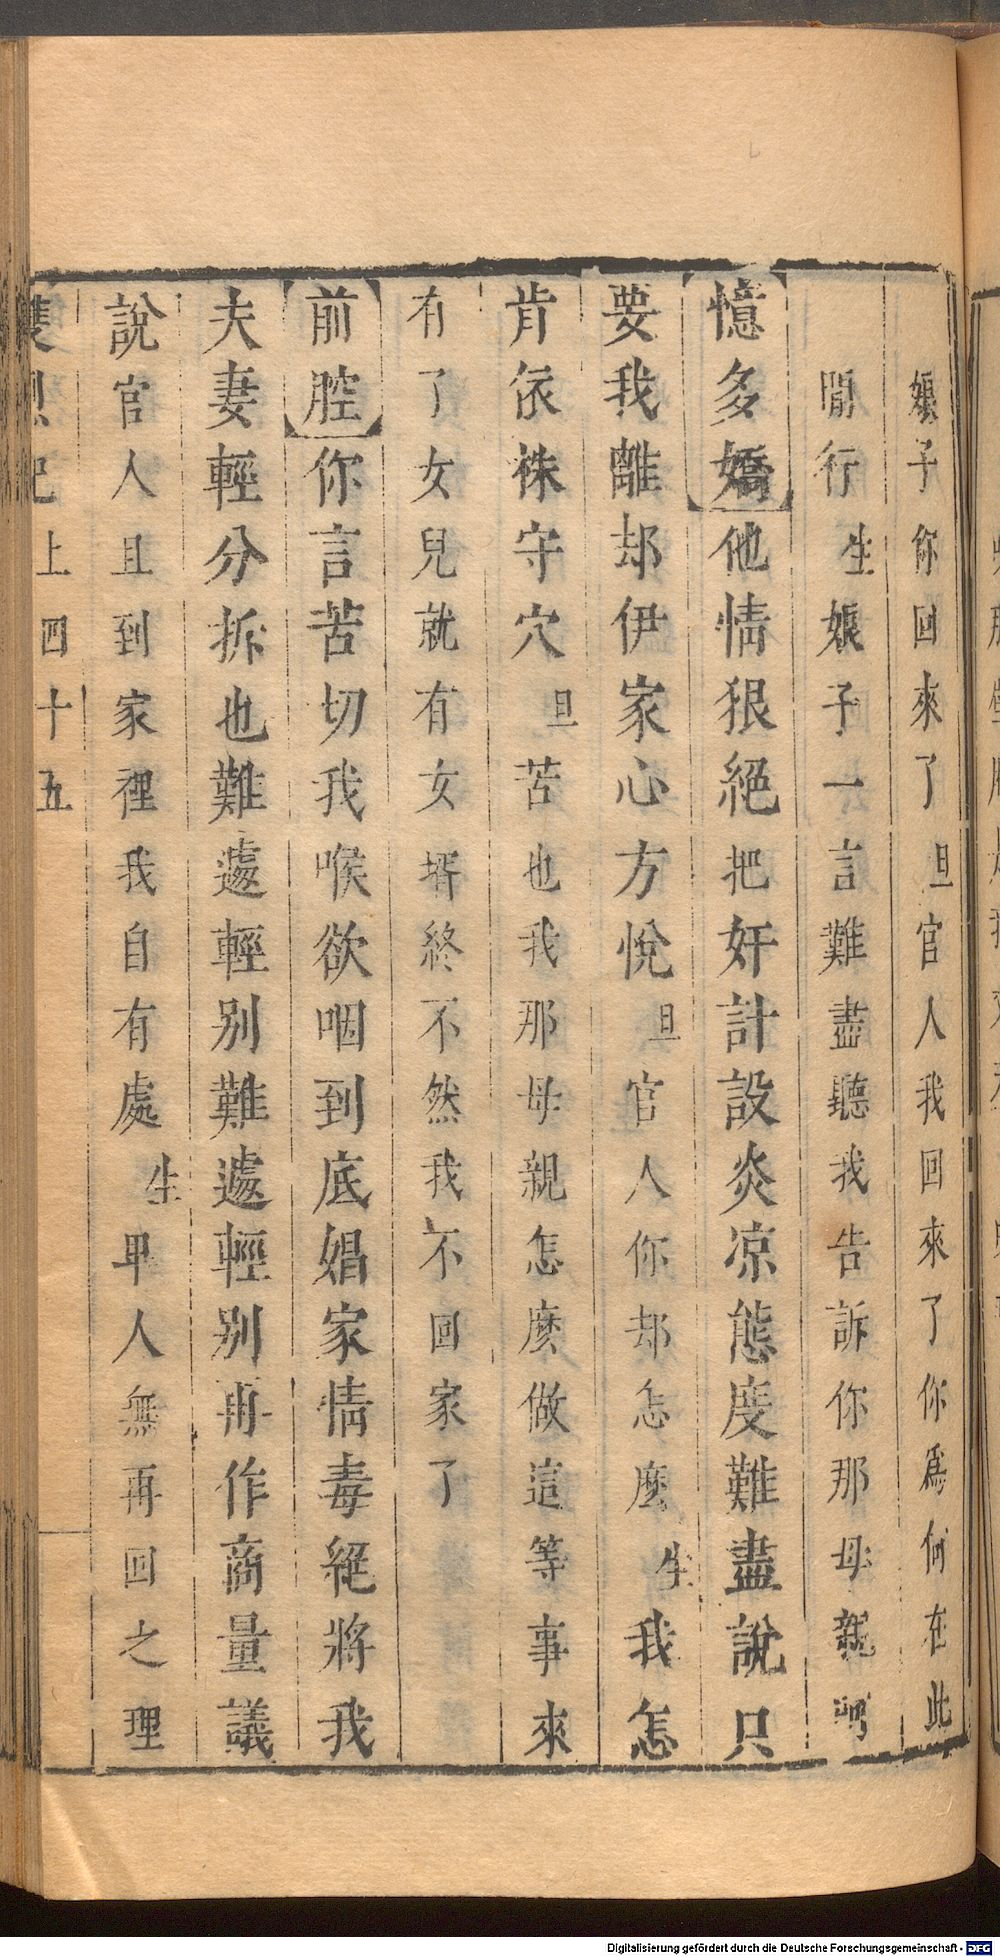 娘子你回來了旦官人我回來了你爲何在此
閒行生娘子一言難盡聽我告訴你那母親呵
憶多嬌他情狠絕把奸計設炎凉態度難盡說只
要我離却伊家心方悅旦官人你却怎麽生我怎
肯依株守穴旦苦也我那母親怎麽做這等事來
有了女兒就有女壻終不然我不回家了
前腔你言苦切我喉欲咽到底娼家情毒絕將我
夫妻輕分拆也難遽輕别難遽輕别再作商量議
說官人且到家裡我自有處生早人無再回之理
雙烈記上四十五
Digitalisierung gefördert durch die Deutsche Forschungsgemeinschaft - DFG